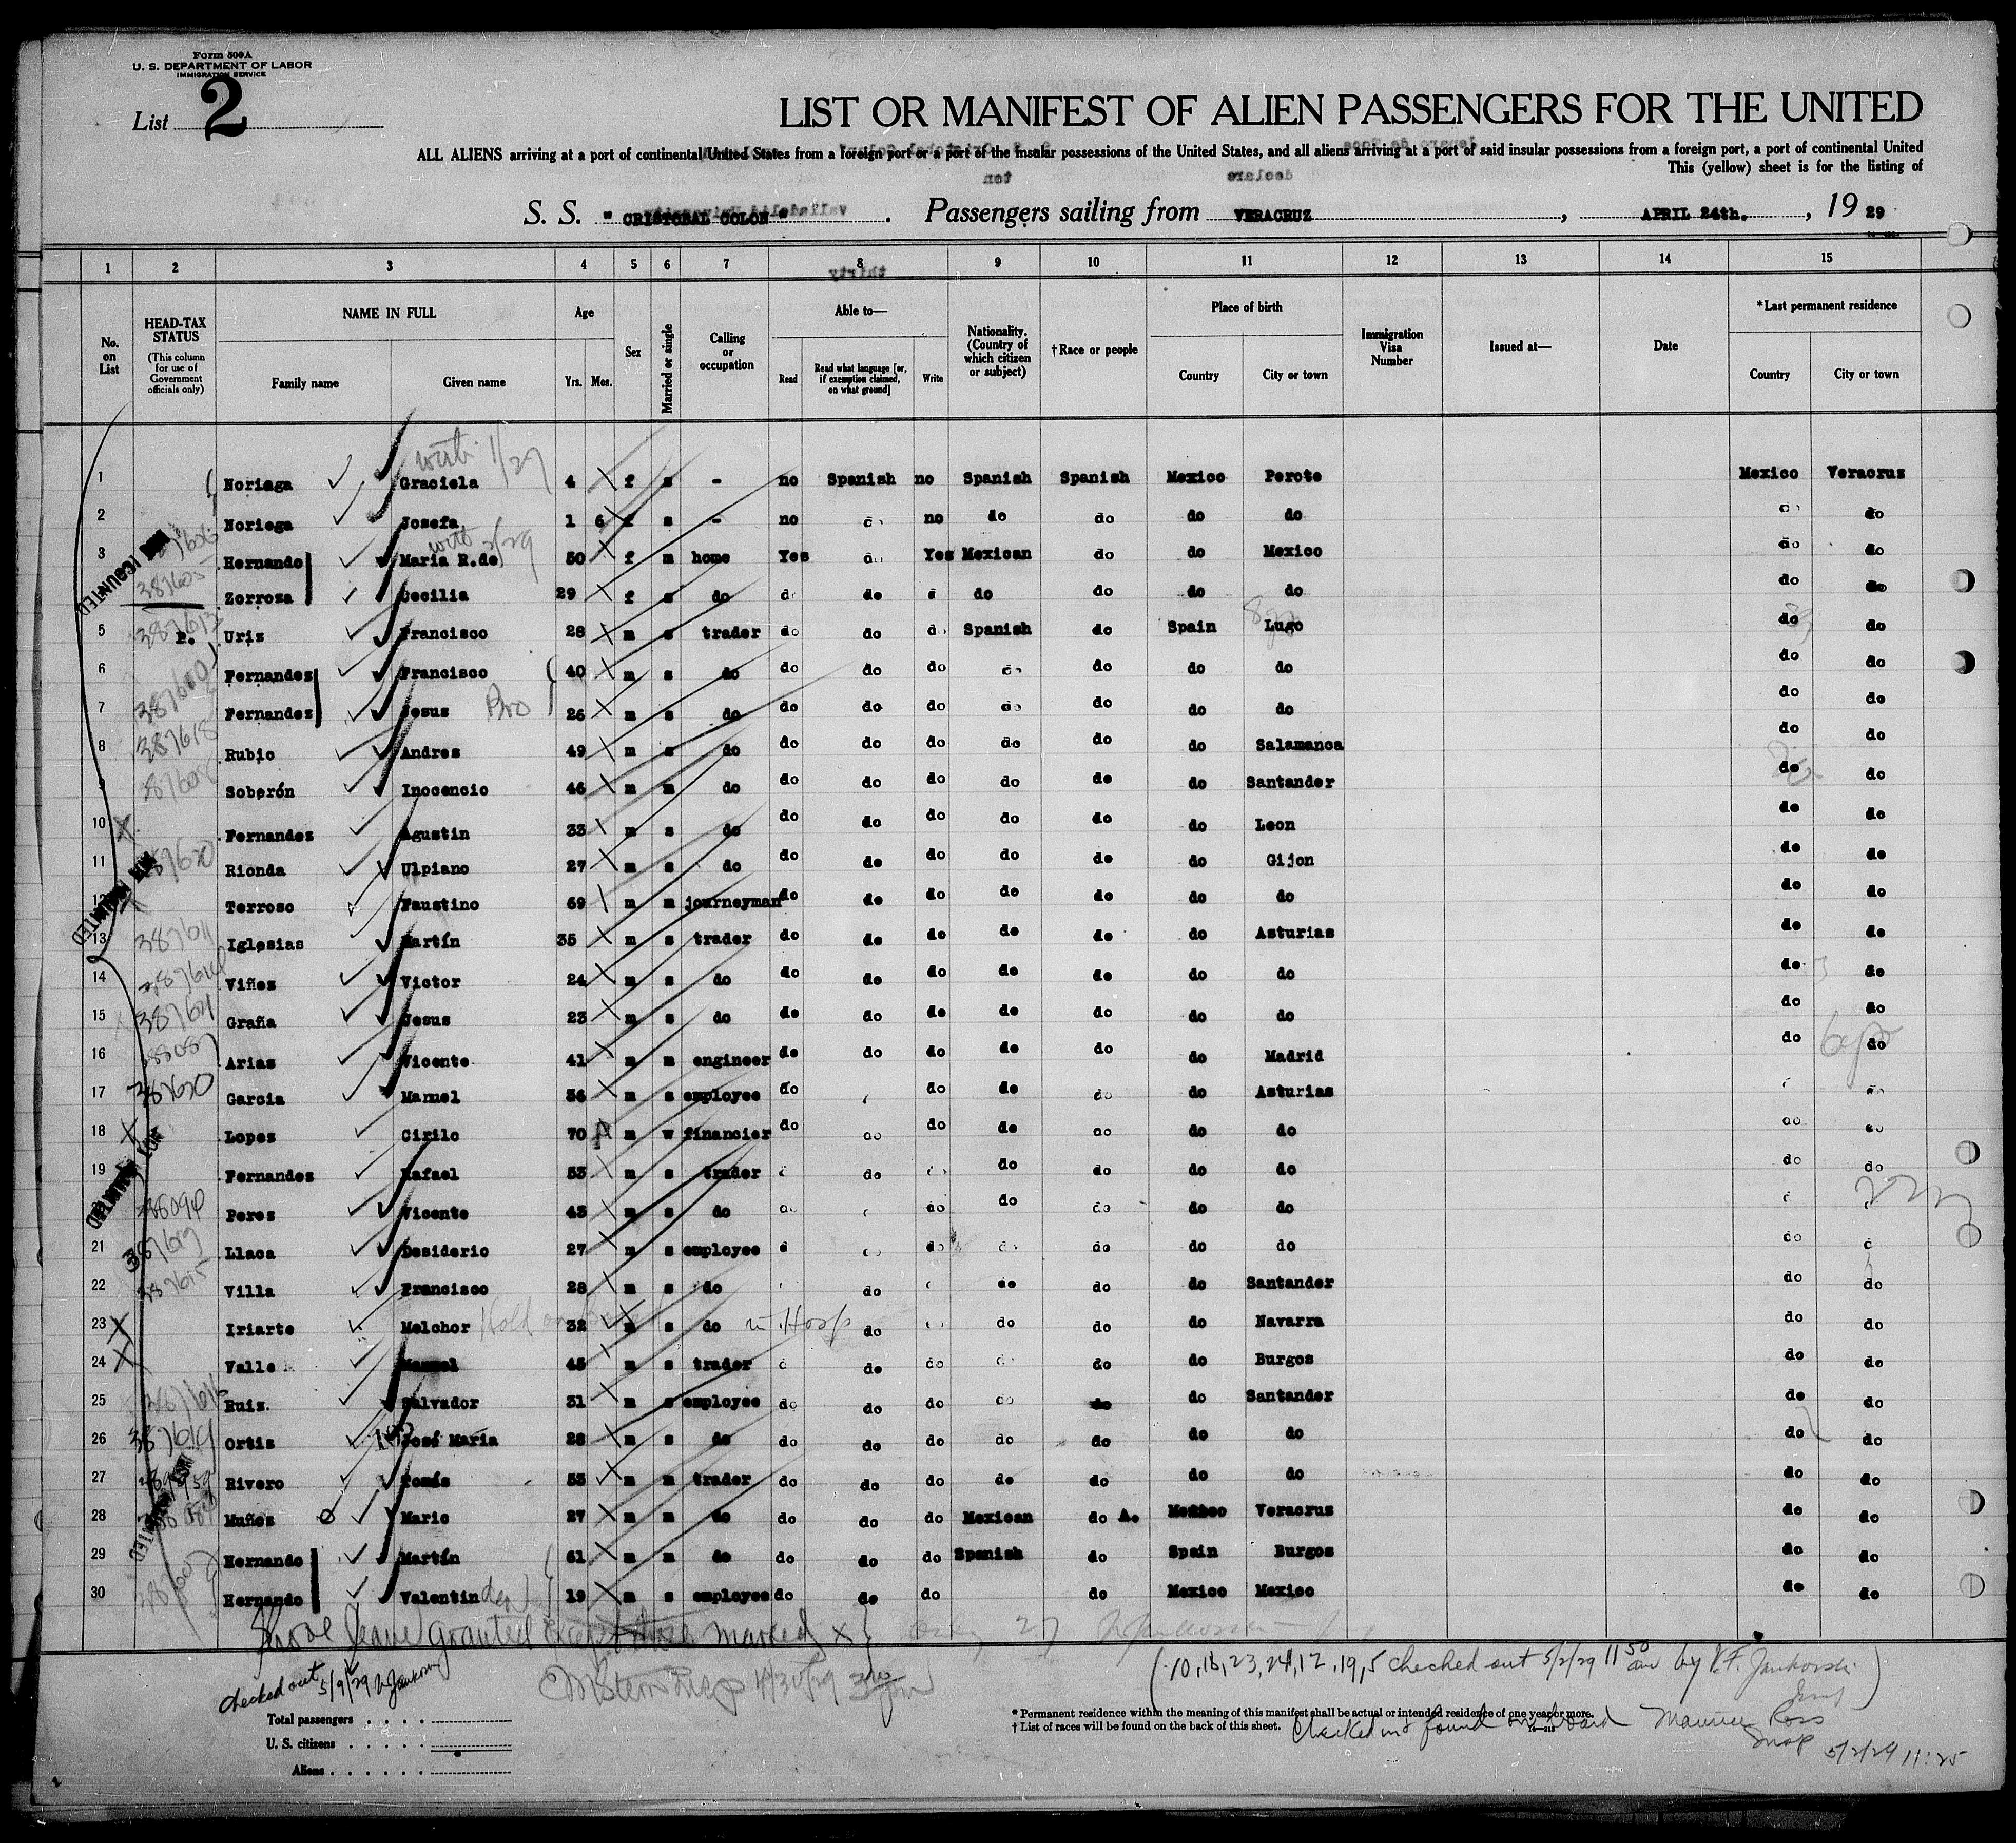 Form 500A
U. S. DEPARTMENT OF LABOR
IMMIGRATION SERVICE
List 2
LIST OR MANIFEST OF ALIEN PASSENGERS FOR THE UNITED
ALL ALIENS arriving at a port of continental United States from a foreign port or a port of the insular possessions of the United States, and all aliens arriving at a port of said insular possessions from a foreign port, a port of continental United
This (yellow) sheet is for the listing of
S. S. "CRISTOBAL COLON". Passengers sailing from VERACRUZ, APRIL 24th., 19 29
1 2 3 4 5 6 7 8 9 10 11 12 13 14 15
No. on List
HEAD-TAX STATUS (This column for use of Government officials only)
NAME IN FULL Family name Given name
Age Yrs. Mos.
Sex
Married or single
Calling or occupation
Able to— Read Read what language [or, if exemption claimed, on what ground] Write
Nationality. (Country of which citizen or subject)
†Race or people
Place of birth Country City or town
Immigration Visa Number
Issued at—
Date
*Last permanent residence Country City or town
1 Noriega Graciela 4 f s - no Spanish no Spanish Spanish Mexico Perote Mexico Veracruz
2 Noriega Josefa 1 6 f s - no do no do do do do do do
3 Hernando Maria R.de 50 f m home Yes do Yes Mexican do do Mexico do do
387605 Zorrosa Cecilia 29 f s do d do d do do do do do do
5 P. Uris Francisco 28 m s trader do do do Spanish do Spain Lugo do do
6 Fernandez Francisco 40 m s do do do do do do do do do do
7 Fernandez Jesus Bro 26 m s do do do do do do do do do do
8 387618 Rubio Andres 49 m s do do do do do do do Salamanca do do
9 Soberón Inocencio 46 m m do do do do do do do Santander do do
10 X Fernandez Agustin 33 m s do do do do do do do Leon do do
11 Rionda Ulpiano 27 m s do do do do do do do Gijon do do
12 Terroso Faustino 69 m m journeyman do do do do do do do do do
13 387611 Iglesias Martín 35 m s trader do do do do do do Asturias do do
14 Viñes Victor 24 m s do do do do do do do do do do
15 Graña Jesus 23 m s do do do do do do do do do do
16 Arias Vicente 41 m m engineer do do do do do do Madrid do do
17 Garcia Manuel 36 m s employee do do do do do Asturias do
18 X Lopez Cirilo 70 m w financier do do do do do do do do do
19 Fernandez Rafael 53 m s trader do do do do do do do
Perez Vicente 43 m s do do do do do do do
21 387619 Llaca Desiderio 27 m s employee do do do do do do
22 387615 Villa Francisco 28 m s do do do do do Santander do do
23 X Iriarte Melchor Hold 32 m s do in Hosp do do do do Navarra do do
24 X Valle Manuel 45 m s trader do do do do Burgos do do
25 387616 Ruiz. Salvador 31 m s employee do do do do do do Santander do do
26 387614 Ortiz José Maria 28 m s do do do do do do do do do do
27 Rivero Tomás 53 m m trader do do do do do do do do do
28 Muñoz Mario 27 m m do do do do Mexican do A. Mexico Veracruz do do
29 Hernando Martín 61 m m do do do do Spanish do Spain Burgos do do
30 Hernando Valentin 19 m s employee do do do do Mexico Mexico do do
Shore leave granted except those marked X
(10,18,23,24,12,19,5 checked out 5/2/29 11 50 am by V.F. Jankovski Insp)
checked out 5/9/29
4/30/29
Total passengers
U. S. citizens
Aliens
* Permanent residence within the meaning of this manifest shall be actual or intended residence of one year or more.
† List of races will be found on the back of this sheet.
Checked and found on board Maurice Ross
Insp 5/2/29 11:25